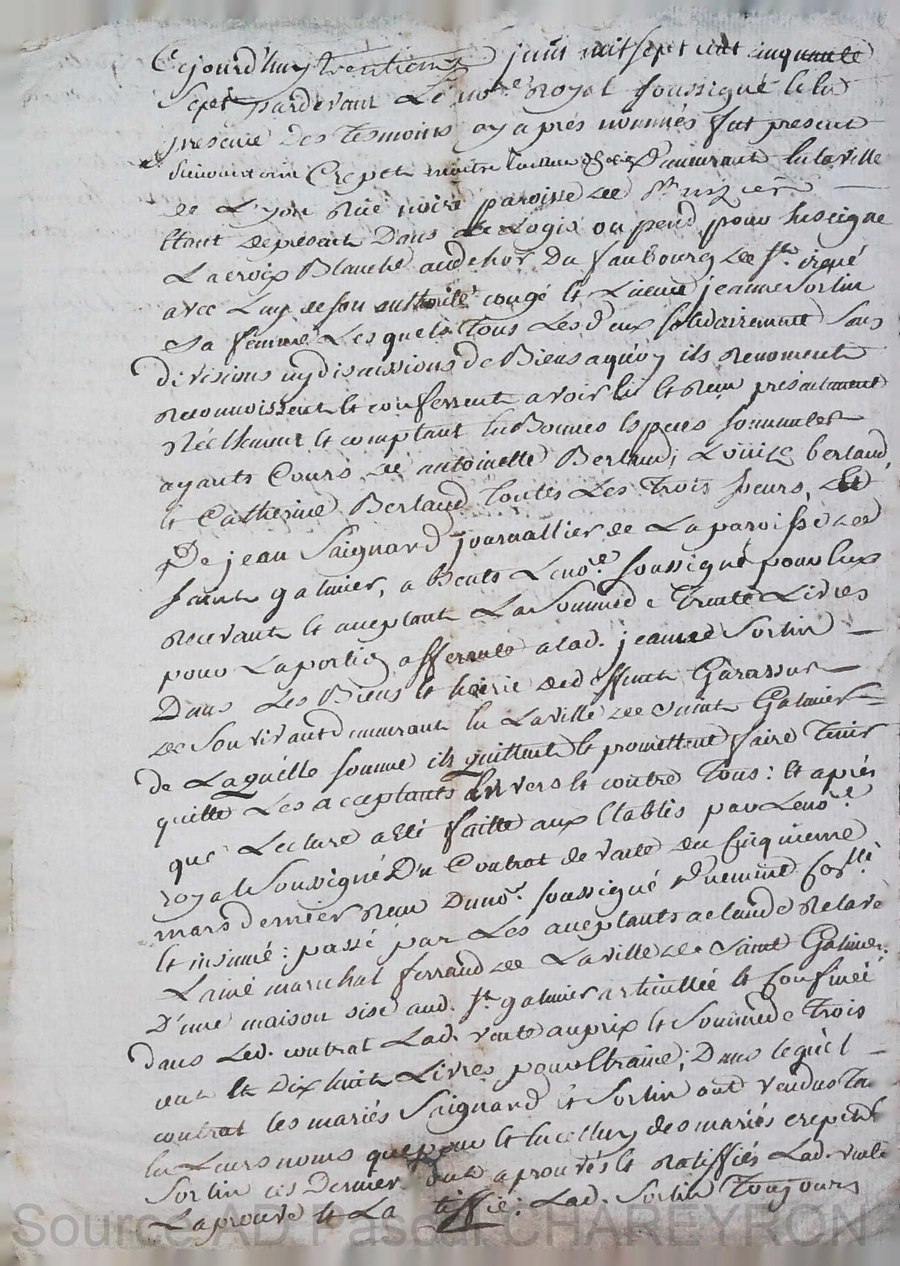 Cejourd'huy trentieme juin mil sept cent cinquante
Sept pardevant Le no.re Royal soussigné & en
presence Des tesmoins cy après nommés fut present
Sieur Crepet maitre demeurant en la ville
de Lyon Rue noire paroisse de St. nizier
Etant de present Dans Le Logis ou pend pour Enseigne
La croix Blanche au dehor Du faubourg de St. irené
avec Luy de son authorité congé & Licence jeanne Sorlin
Sa femme Lesquels tous Les deux solidairement sans
divisions ny discussions de Biens a quoy ils Renoncent
Reconnoissent & confessent avoir Eu & Reçu presentement
Réellement & comptant En Bonnes Especes sonnantes
ayants Cours de antoinette Berlaud, Louise berlaud,
& Catherine Berlaud toutes Les trois soeurs, Et
De jean Saignard journallier de La paroisse de
saint galmier, absents Le no.e soussigné pour Eux
Recevant & acceptant La Somme de trente Livres
pour La portion afferente a lad. jeanne Sorlin
Dans Les Biens & hoirie de deffunt Garassus
de Son vivant demeurant En La ville de Saint Galmier
de Laquelle somme ils quittent & promettent faire tenir
quitte Les acceptants Envers & contre tous: & après
que Lecture a Eté faitte aux Etablis par Le no.e
royal Soussigné D'un Contrat de vente du Cinquieme
mars dernier Reçu Du no.e soussigné Duement Con.llé
& insinué: passé par Les acceptants a claude
Lainé marechal ferrand de La ville de Saint Galmier.
D'une maison sise aud. St. galmier articullée & Confinée
dans Led. contrat Lad. vente au prix & Somme de trois
cent & Dix huit Livres pour Etraine; Dans lequel
contrat les mariés Saignard & Sorlin ont vendus tant
En Leurs noms que pour & En celluy des mariés crepet &
Sorlin ces Dernier ont aprouvés & Ratiffiés Lad. vente
Laprouve & La tiffie: Lad. Sorlin toujours
Source AD Pascal CHAREYRON